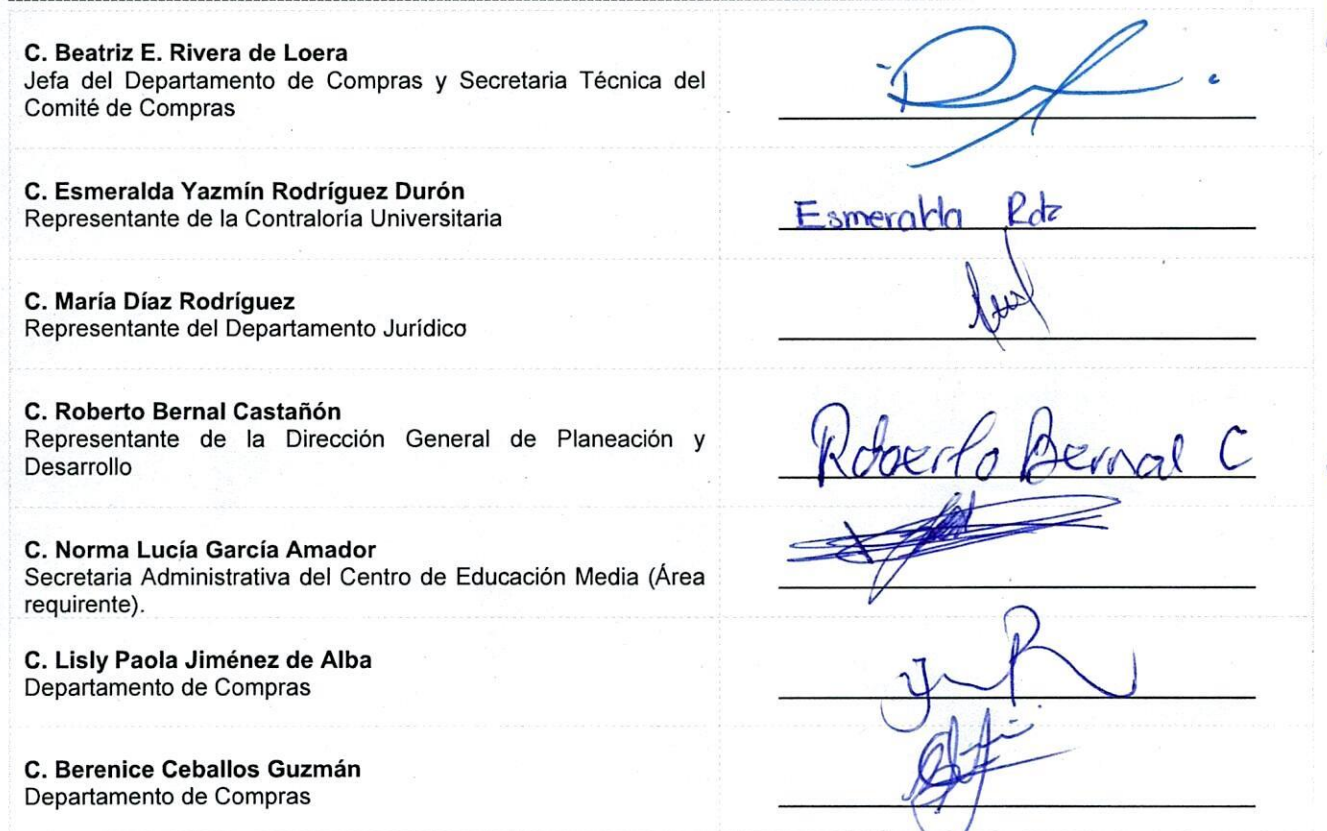 C. Beatriz E. Rivera de Loera
Jefa del Departamento de Compras y Secretaria Técnica del
Comité de Compras
C. Esmeralda Yazmín Rodríguez Durón
Representante de la Contraloría Universitaria
Esmeralda Rdz
C. María Díaz Rodríguez
Representante del Departamento Jurídico
C. Roberto Bernal Castañón
Representante de la Dirección General de Planeación y
Desarrollo
Roberto Bernal C
C. Norma Lucía García Amador
Secretaria Administrativa del Centro de Educación Media (Área
requirente).
C. Lisly Paola Jiménez de Alba
Departamento de Compras
C. Berenice Ceballos Guzmán
Departamento de Compras